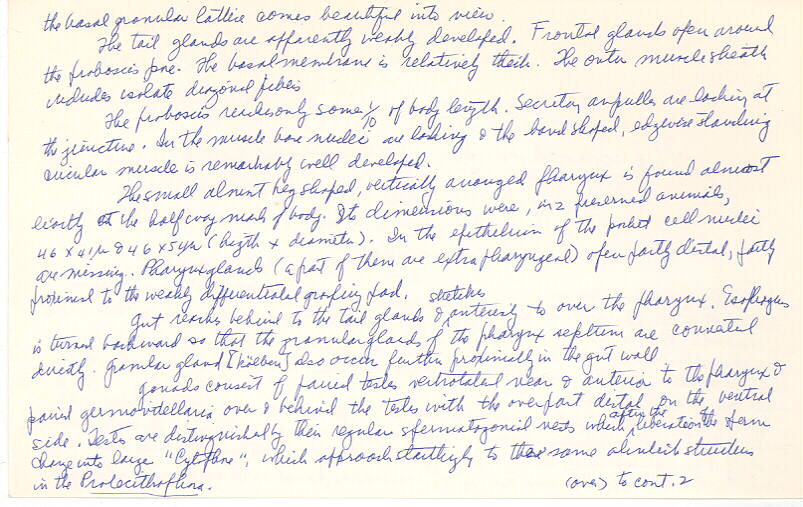 the basal granular lattice comes beautiful into view.
The tail glands are apparently weakly developed. Frontal glands open around
the proboscis pore. The basal membrane is relatively thick. The outer muscle sheath
includes isolate diagonal fibers
The proboscis reaches only some 1/10 of body length. Secretory ampulles are lacking at
the juncture. In the muscle bare nuclei are lacking & the band shaped, edgewise standing
circular muscle is remarkably well developed.
The small almost keg shaped, vertically arranged pharynx is found almost
exactly at the halfway mark of body. Its dimensions were, in 2 preserved animals,
46 x 41µ & 46 x 54µ (heigth x diameter). In the epithelium of the pocket cell nuclei
are missing. Pharynx glands (a part of them are extrapharyngeal) open partly distal, partly
proximal to the weakly differentiated grasping pad. sketches
Gut reaches behind to the tail glands & anteriorly to over the pharynx. Esophagus
is turned backward so that the granular glands of the pharynx septum are connected
directly. Granular gland [Kolben] also occur further proximally in the gut wall.
Gonads consist of paired testes ventrolateral near & anterior to the pharynx &
paired germovitellaria over & behind the testes with the over part distal on the ventral
side. Testes are distinguished by their regular spermatogonial nests which after the liberation the sperm
change into large "Cytophore", which approach startlingly to the same alveoli structures
in the Prolecithophora.
(over) to cont. 2